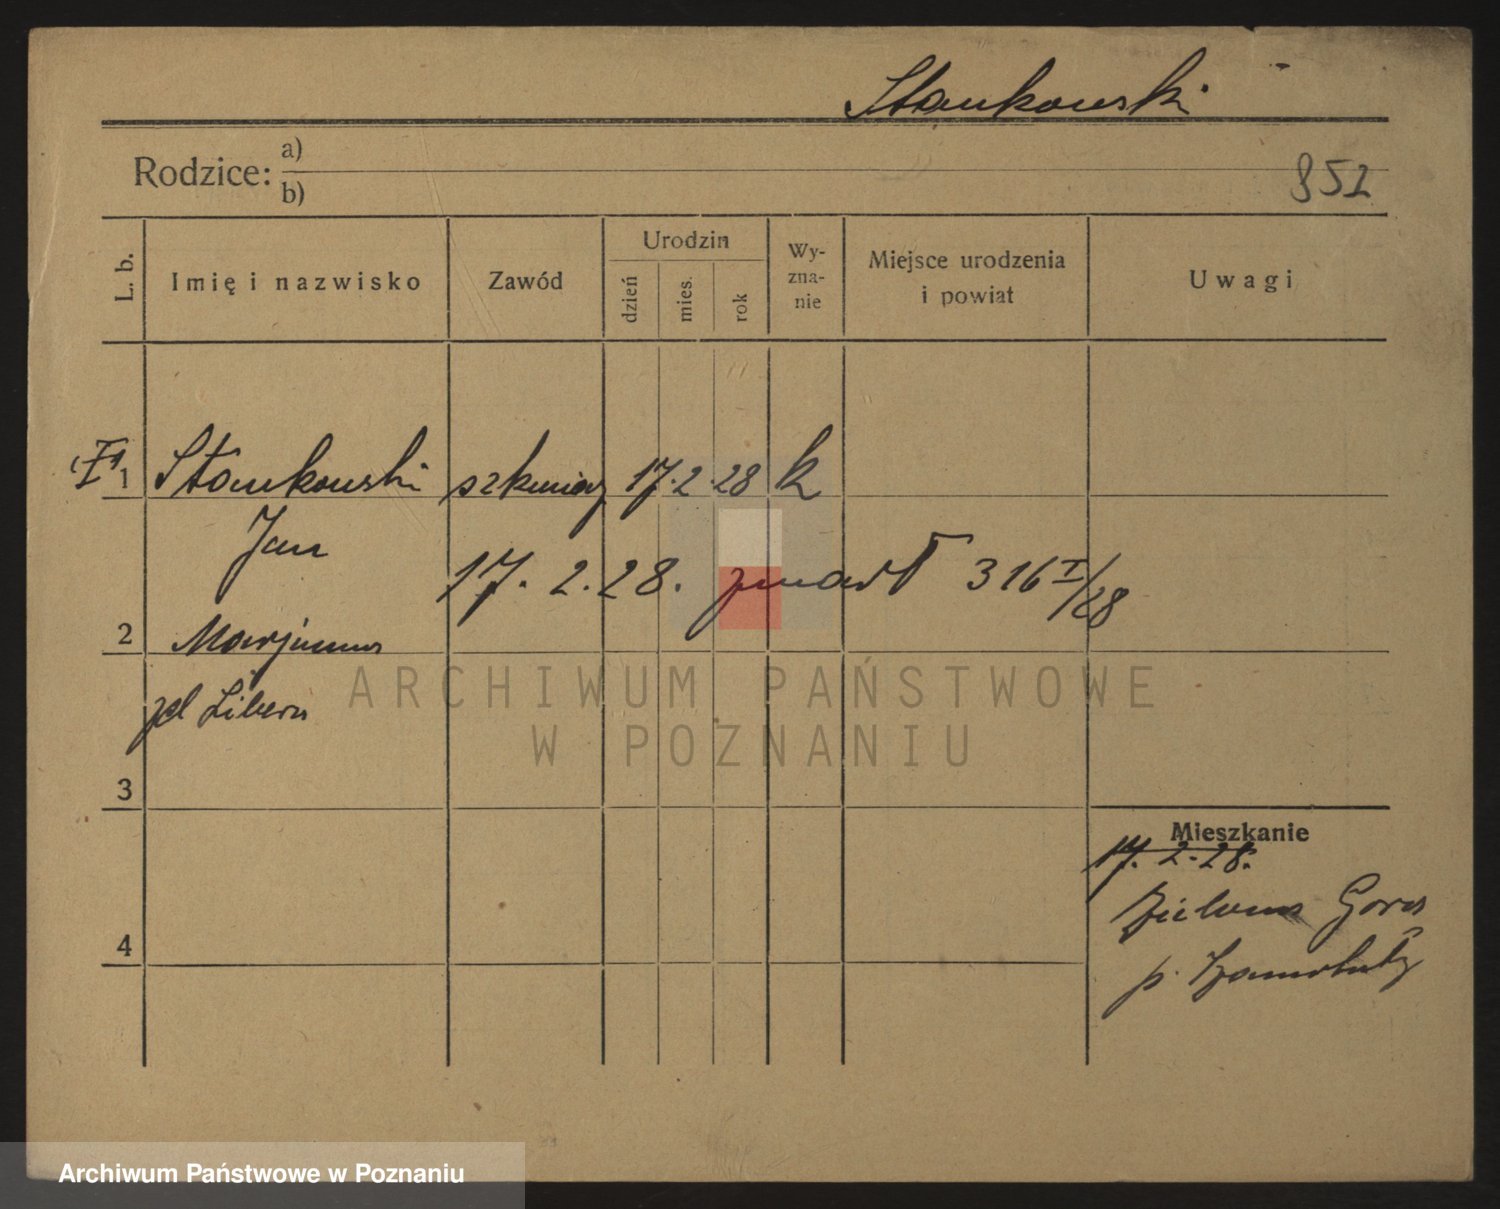 Stankowski
Rodzice: a)
b)
852
L. b.
Imię i nazwisko
Zawód
Urodzin
dzień
mies.
rok
Wy-
zna-
nie
Miejsce urodzenia
i powiat
Uwagi
1 Stankowski 17. 2 28 k
Jan
17. 2. 28. zmarł 316 I/28
2 Marjanna
Libera
ARCHIWUM PAŃSTWOWE
W POZNANIU
3
Mieszkanie
17. 2. 28.
Zielona Gora
4
p. Szamotuły
Archiwum Państwowe w Poznaniu